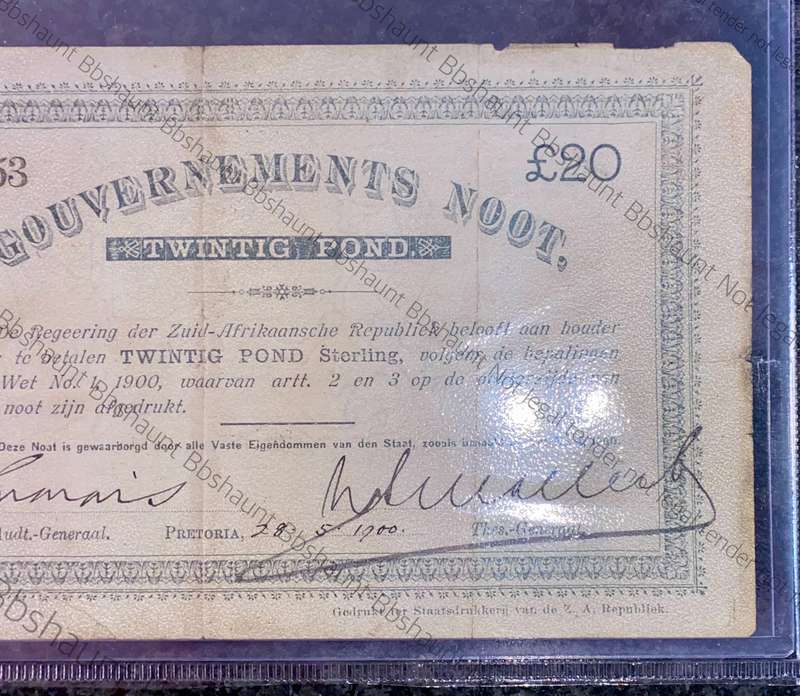 53
£20
GOUVERNEMENTS NOOT,
TWINTIG POND.
De Regeering der Zuid-Afrikaansche Republiek belooft aan houder
te betalen TWINTIG POND Sterling, volgens de bepalingen
Wet No. 1, 1900, waarvan artt. 2 en 3 op de
noot zijn afgedrukt.
Deze Noot is gewaarborgd door alle Vaste Eigendommen van den Staat, zooals
Marais
Audt.-Generaal.
PRETORIA, 28 5 1900.
Thes.-Generaal.
Gedrukt ter Staatsdrukkerij van de Z. A. Republiek.
Bbshaunt Not legal tender